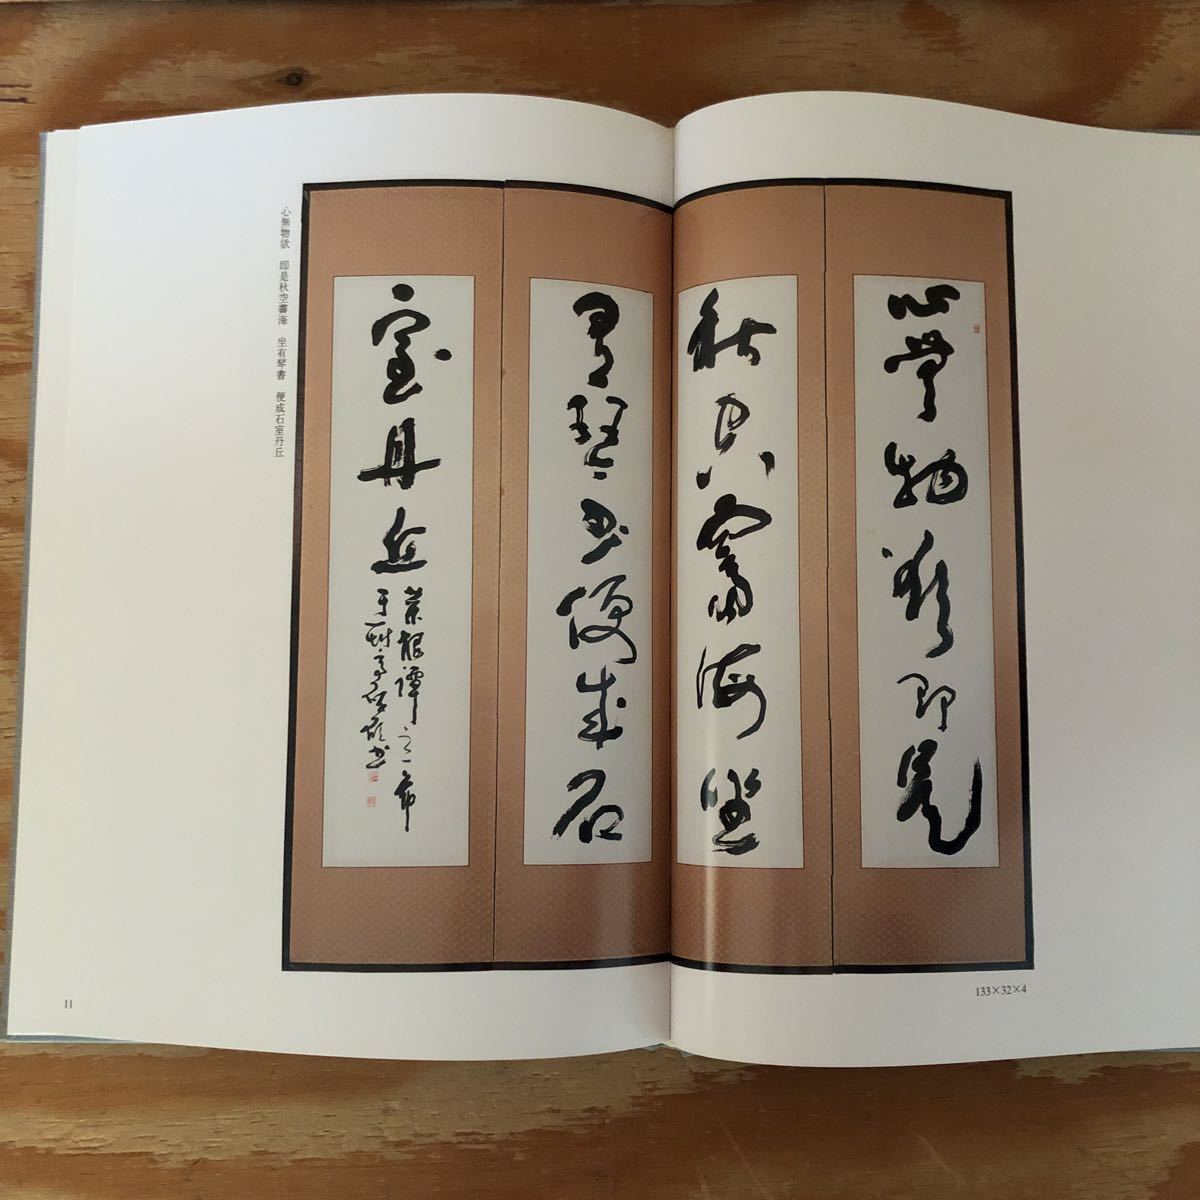 心無物欲即是
秋空霽海坐
有琴書便成石
室丹丘
菜根譚之一節
心無物欲　即是秋空霽海　坐有琴書　便成石室丹丘
133×32×4
11